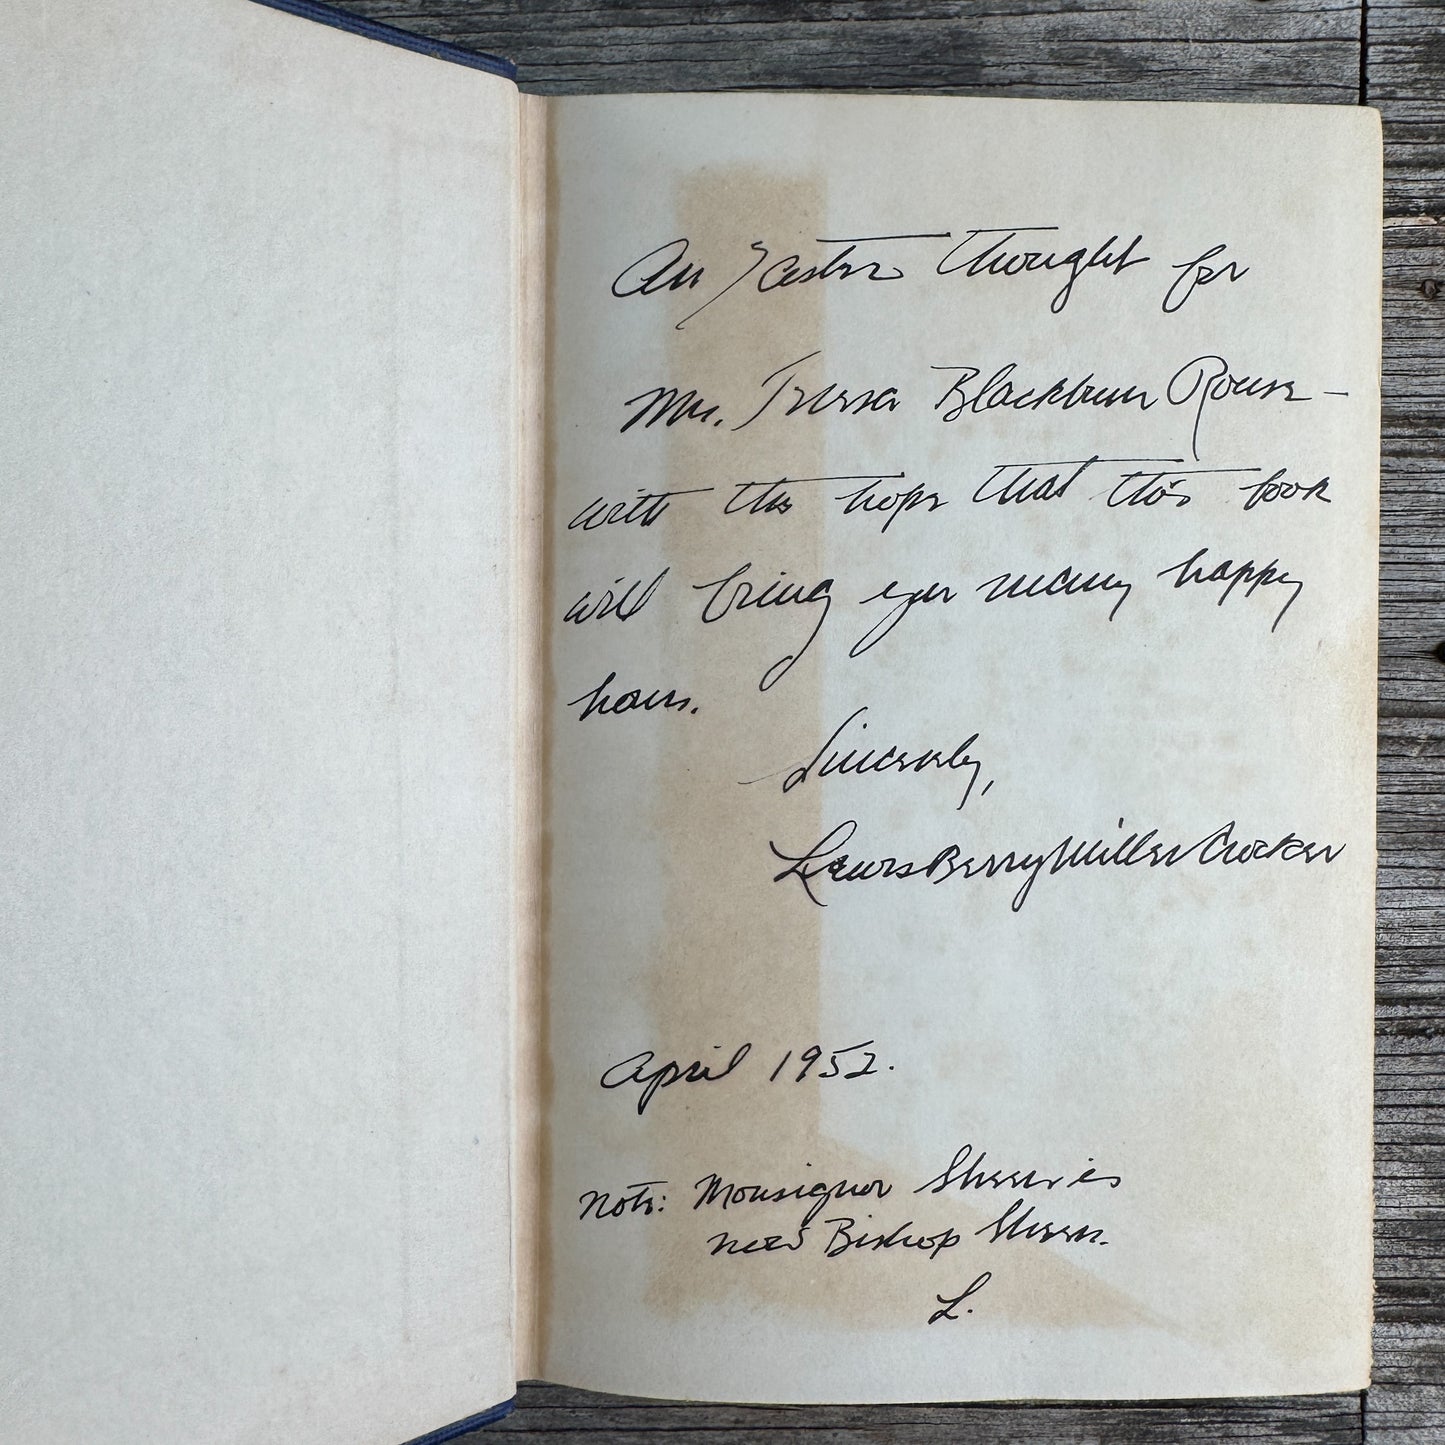 An Easter Thought for
Mrs. Teresa Blackburn Rouse –
with the hope that this book
will bring you many happy
hours.
Sincerely,
Lewis Berry Miller Crocker
April 1952.
Note: Monsignor Sheen is
now Bishop Sheen.
L.